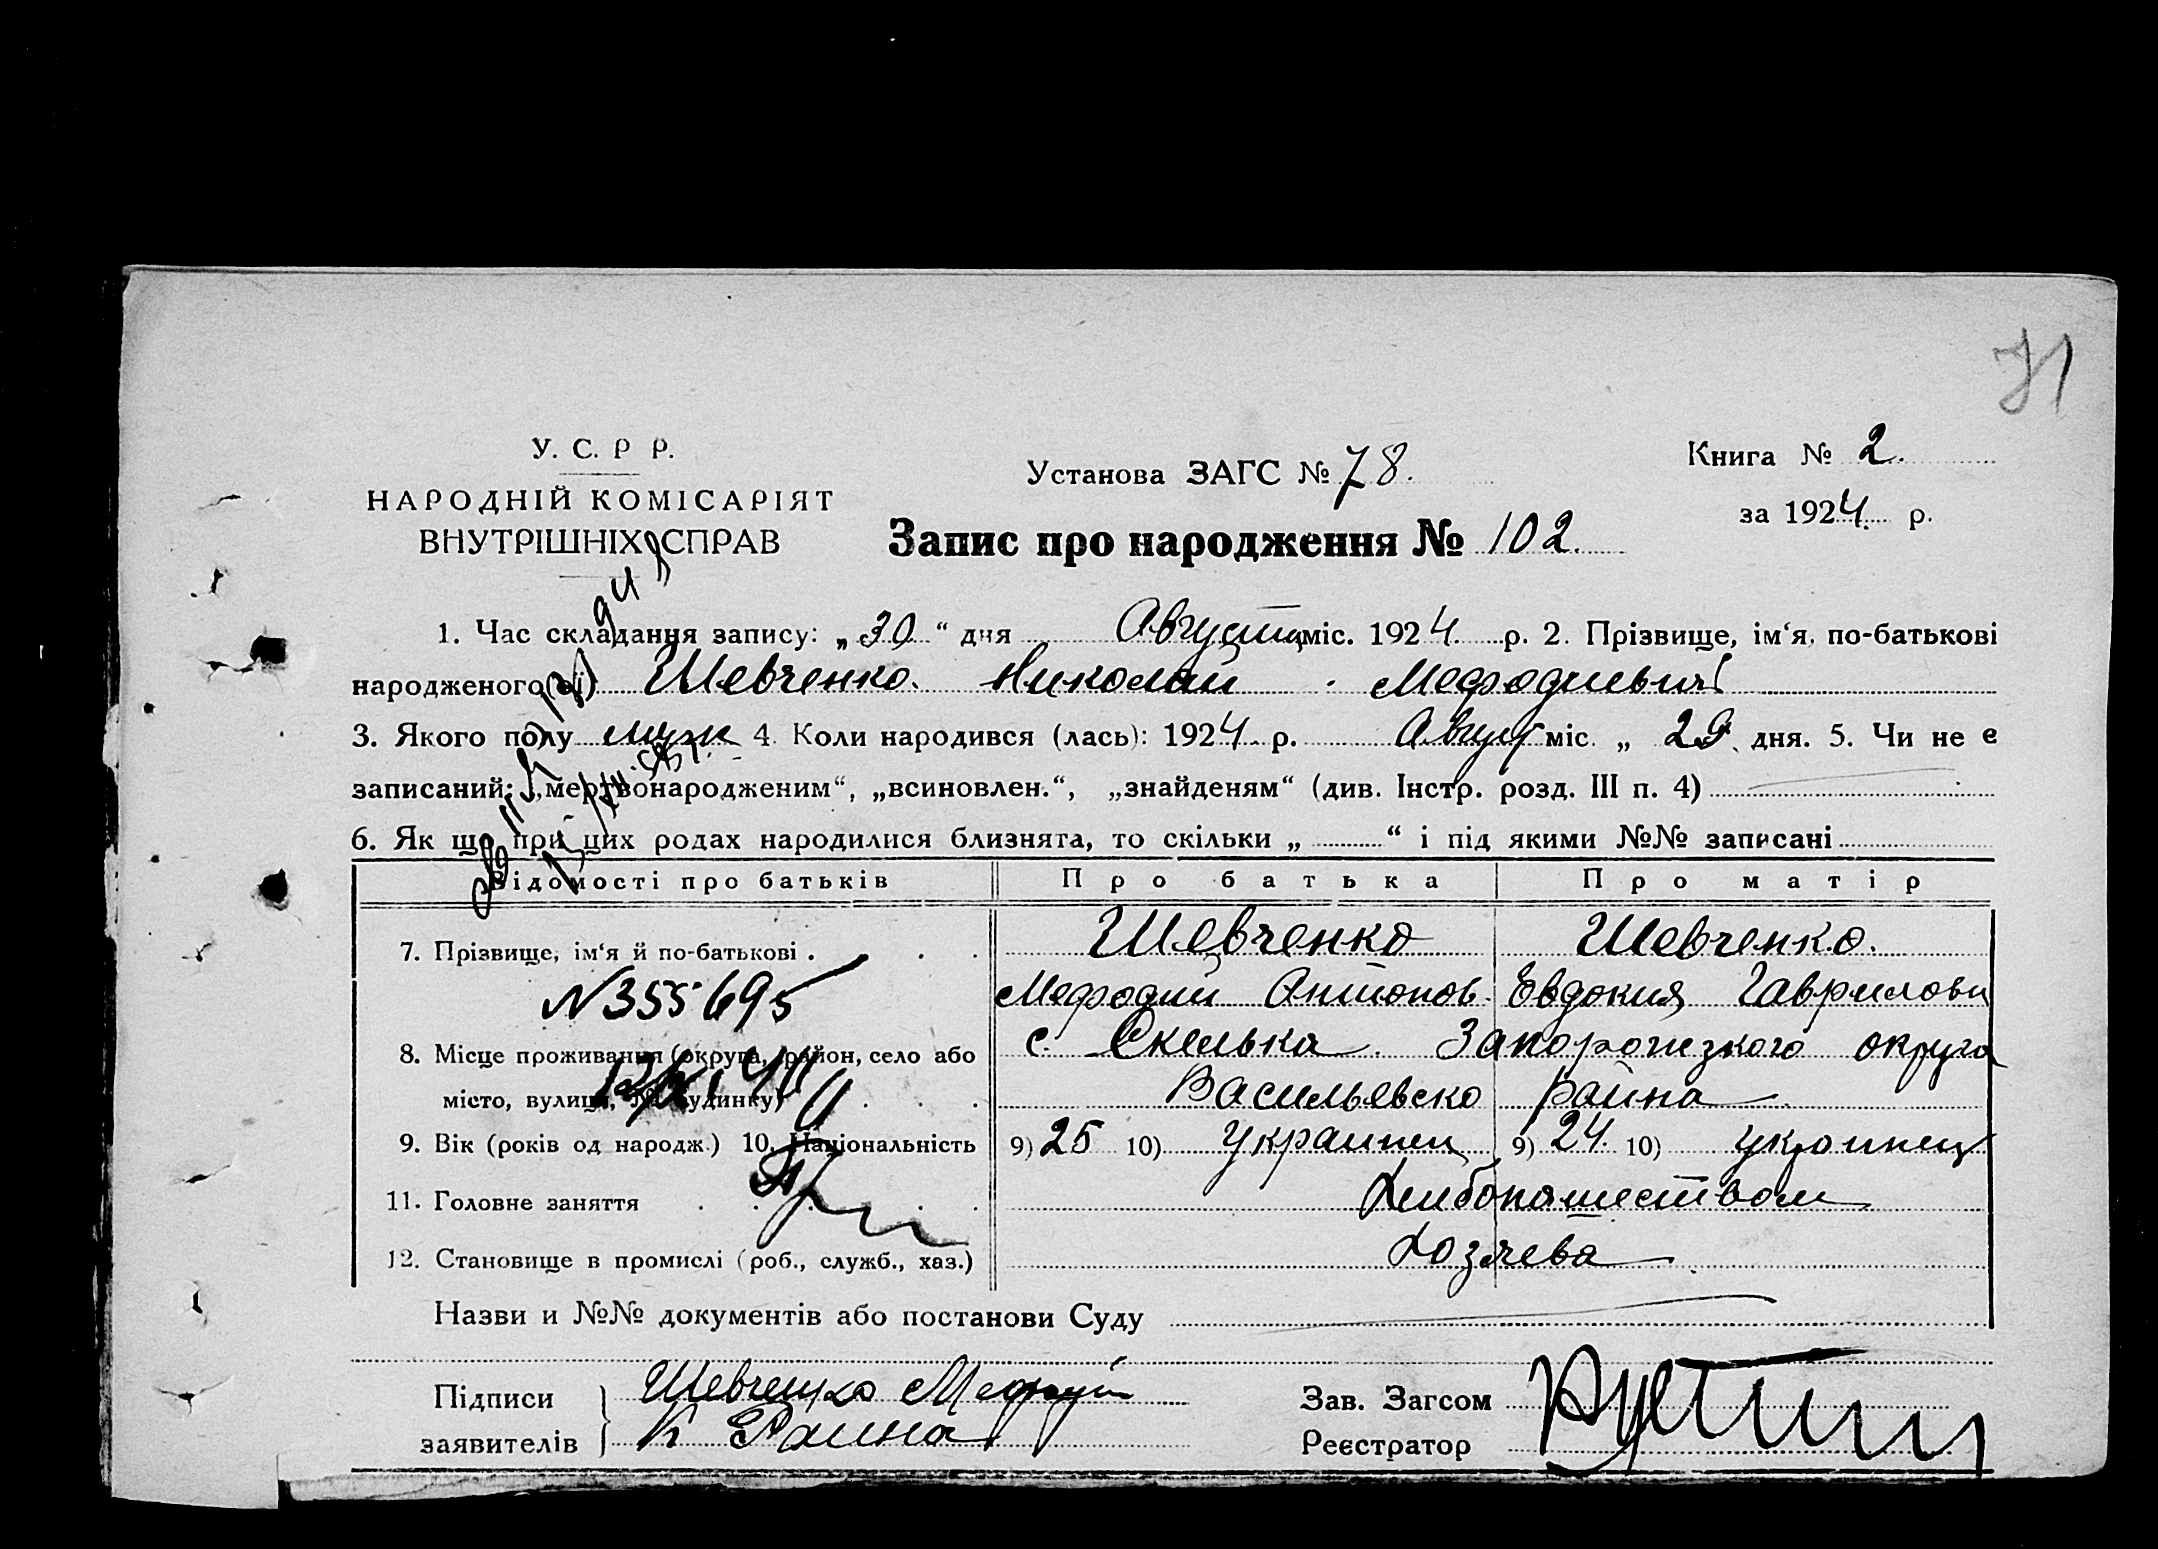 71
У. С. Р Р.
НАРОДНІЙ КОМІСАРІЯТ
ВНУТРІШНІХ СПРАВ
Установа ЗАГС № 78.
Книга № 2.
за 1924 р.
Запис про народження № 102.
1. Час складання запису: „30“ дня Августа міс. 1924 р. 2. Прізвище, ім‘я, по-батькові
народженого(ої) Шевченко Николай Мефодиевич
3. Якого полу муж 4. Коли народився (лась): 1924 р. Август міс. „ 29 дня. 5. Чи не є
записаний: „мертвонародженим“, „всиновлен.“, „знайденям“ (див. Інстр. розд. III п. 4)
6. Як що при цих родах народилися близнята, то скільки „ “ і під якими №№ записані
Відомості про батьків Про батька Про матір
7. Прізвище, ім‘я й по-батькові Шевченко Шевченко.
N 355695 Мефодий Антонов. Евдокия Гаврилови
8. Місце проживання (округа, район, село або с. Скелька Запорожского округа
місто, вулиця, № будинку) Васильевско района
9. Вік (років од народж.) 10. Національність 9) 25 10) Украинец 9) 24. 10) украинец
11. Головне заняття Хлибопашеством
12. Становище в промислі (роб., служб., хаз.) Хозяева
Назви и №№ документів або постанови Суду
Підписи Шевченко
заявителів
Зав. Загсом
Реєстратор